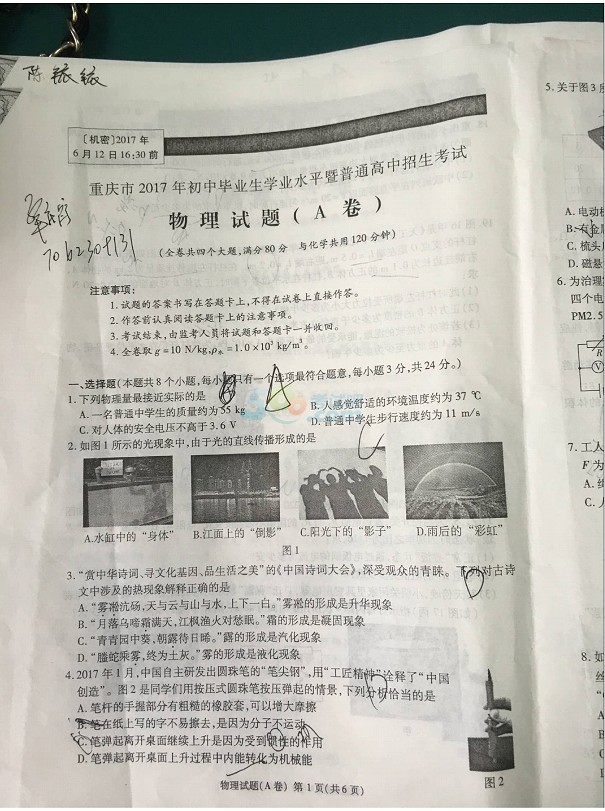 [机密]2017年
6月12日16:30前
重庆市2017年初中毕业生学业水平暨普通高中招生考试
物理试题(A卷)
(全卷共四个大题,满分80分 与化学共用120分钟)
注意事项:
1.试题的答案书写在答题卡上,不得在试卷上直接作答。
2.作答前认真阅读答题卡上的注意事项。
3.考试结束,由监考人员将试题和答题卡一并收回。
4.全卷取g=10 N/kg,ρ水=1.0×10³ kg/m³。
一、选择题(本题共8个小题,每小题只有一个选项最符合题意,每小题3分,共24分。)
1.下列物理量最接近实际的是 A
A.一名普通中学生的质量约为55 kg B.人感觉舒适的环境温度约为37 ℃
C.对人体的安全电压不高于3.6 V D.普通中学生步行速度约为11 m/s
2.如图1所示的光现象中,由于光的直线传播形成的是 C
A.水缸中的“身体” B.江面上的“倒影” C.阳光下的“影子” D.雨后的“彩虹”
图1
3.“赏中华诗词、寻文化基因、品生活之美”的《中国诗词大会》,深受观众的青睐。下列对古诗
文中涉及的热现象解释正确的是
A.“雾凇沆砀,天与云与山与水,上下一白。”雾凇的形成是升华现象
B.“月落乌啼霜满天,江枫渔火对愁眠。”霜的形成是凝固现象
C.“青青园中葵,朝露待日晞。”露的形成是汽化现象
D.“螣蛇乘雾,终为土灰。”雾的形成是液化现象
4.2017年1月,中国自主研发出圆珠笔的“笔尖钢”,用“工匠精神”诠释了“中国
创造”。图2是同学们用按压式圆珠笔按压弹起的情景,下列分析恰当的是
A.笔杆的手握部分有粗糙的橡胶套,可以增大摩擦
B.笔在纸上写的字不易擦去,是因为分子不运动
C.笔弹起离开桌面继续上升是因为受到惯性的作用
D.笔弹起离开桌面上升过程中内能转化为机械能
图2
物理试题(A卷) 第1页(共6页)
5.关于图3
A.电动机
B.有金属
C.梳头
D.磁悬
6.为治理
四个电
PM2.5
R
V
7.工人
F为
A.
C.
8.如